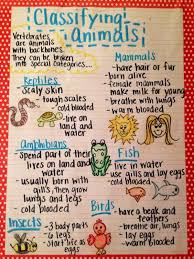 Classifying
Animals
Vertebrates
are animals
with backbones.
They can be broken
into special categories...
Mammals
- have hair or fur
- born alive
- female mammals
make milk for young
- breathe with lungs
- warm blooded
Reptiles
- Scaly skin
- tough scales
- cold blooded
- live on
land and
water
Amphibians
- Spend part of their
lives on land and
water
- usually born with
gills, then grow
lungs and legs
- cold blooded
Fish
- live in water
- use gills and lay eggs
- cold blooded
Birds
- have a beak and
feathers
- breathe air/lungs
- lay eggs
- warm blooded
Insects
- 3 body parts
- 6 legs
- Start life as
eggs